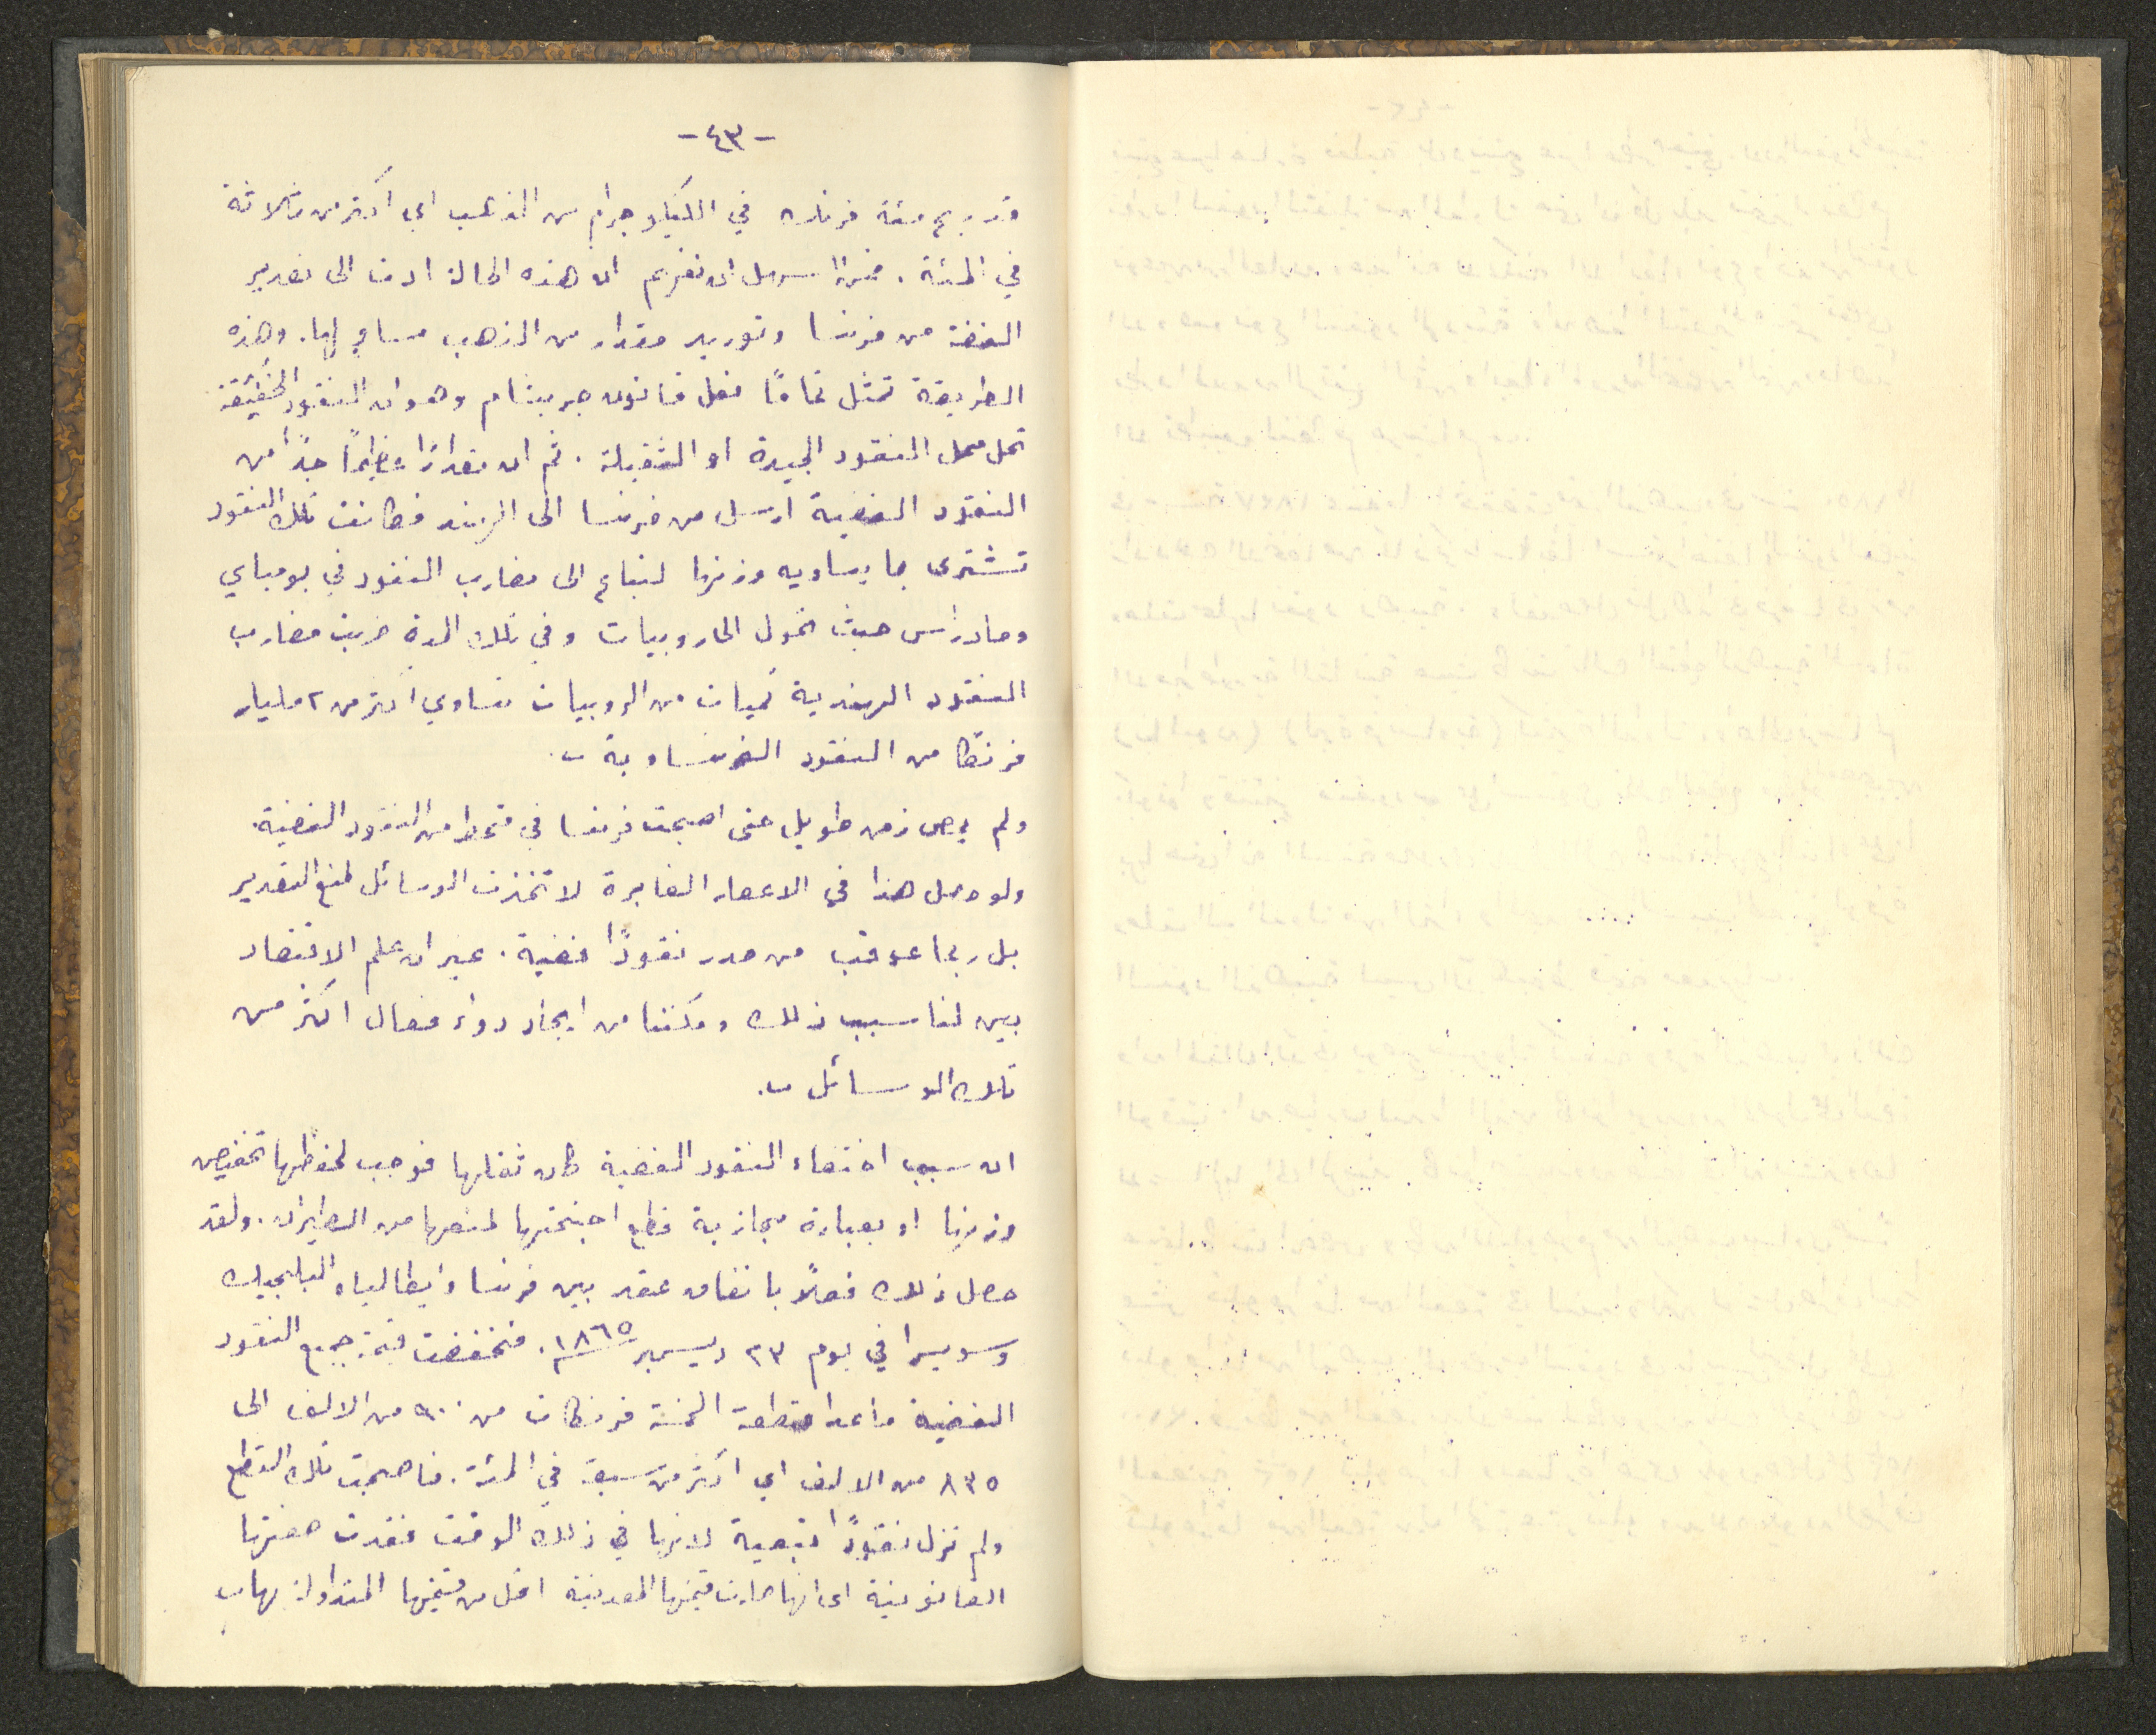 -٤٣-
قدر بح مئة فرنك في الكيلو جرام من الذهب اي اكثر من ثلاثة
في المئة . فمن السهل ان نفهم ان هذه الحالة ادت الى تصدير
الفضة من فرنسا وتوريد مقدار من الذهب مساوٍ لها . وهذه
الطريقة تمثل تمامًا فعل قانون جريشام وهو ان النقود الخفيفة
تحل محل النقود الجيدة او الثقيلة . ثم ان مقدارًا عظيمًا جدًا من
النقود الفضية ارسل من فرنسا الى الهند فكانت تلك النقود
تشترى بما يساويه وزنها لتباع الى مضارب النقود في بومباي
ومادراس حيث تحول الى روبيات وفي تلك المدة ضربت مضارب
النقود الهندية كميات من الروبيات تساوي اكثر من ٢ مليار
فرنكا من النقود الفرنساوية .
ولم يمض زمن طويل حتى اصبحت فرنسا في قحط من النقود الفضية .
ولو حصل هذا في الاعصار الغابرة لاتخذت الوسائل لمنع التصدير
بل ربما عوقب من صدر نقودًا فضية . غير ان علم الاقتصاد
بين لنا سبب ذلك ومكننا من ايجاد دواء فعال اكثر من
تلك الوسائل .
ان سبب اختفاء النقود الفضية كان ثقلها فوجب لحفظها تخفيض
وزنها او بعبارة مجازية قطع اجنحتها لمنعها من الطيران . ولقد
حصل ذلك فعلًا باتفاق عقد بين فرنسا وايطاليا والبلجيك
وسويسرا في يوم ٢٣ ديسمبر ١٨٦٥ . فتخفضت قيمة جميع النقود
الفضية ما عدا قطعة الخمسة فرنكات من ٩٠٠ من الالف الى
٨٣٥ من الالف اي اكثر من سبعة في المئة . فاصبحت تلك القطع
ولم تزل نقودًا تبعية لانها في ذلك الوقت فقدت صفتها
القانونية اي انها صارت قيمتها المعدنية اقل من قيمتها المتداولة بها .